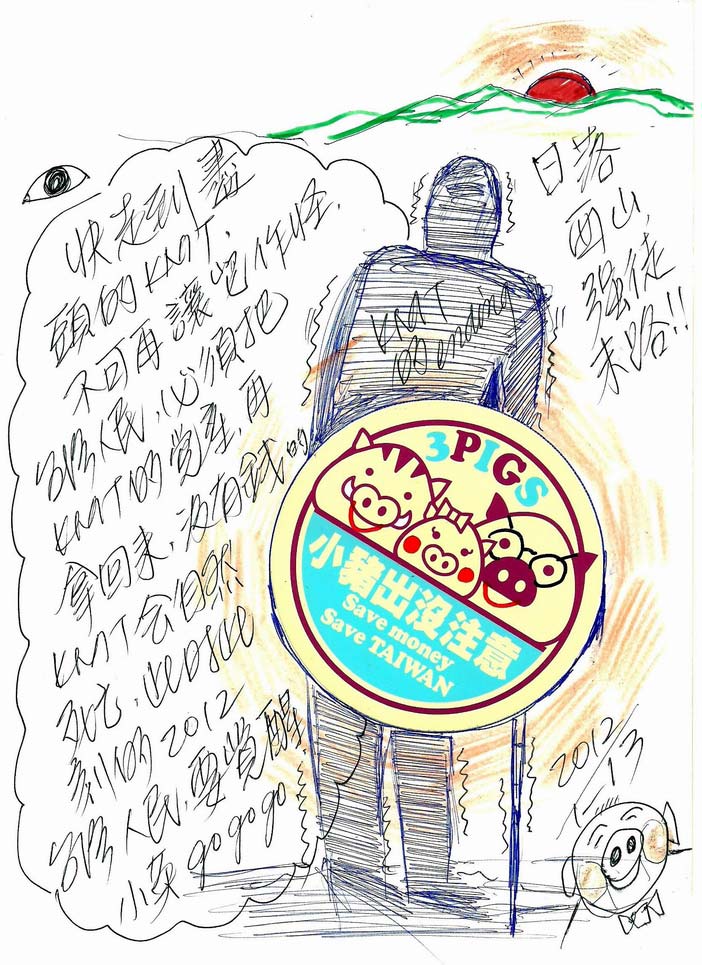 快走到盡
頭的KMT,
不可再讓它作怪,
台灣人民,必須把
KMT的黨產再
拿回來,沒有錢的
KMT會自然
死亡,此時此
刻的2012
台灣人民,要覺醒,
小英gogogo
日落
西山,
強徒
末路!!
KMT
的ending
3PIGS
小豬出沒注意
Save money
Save TAIWAN
2012
1/13